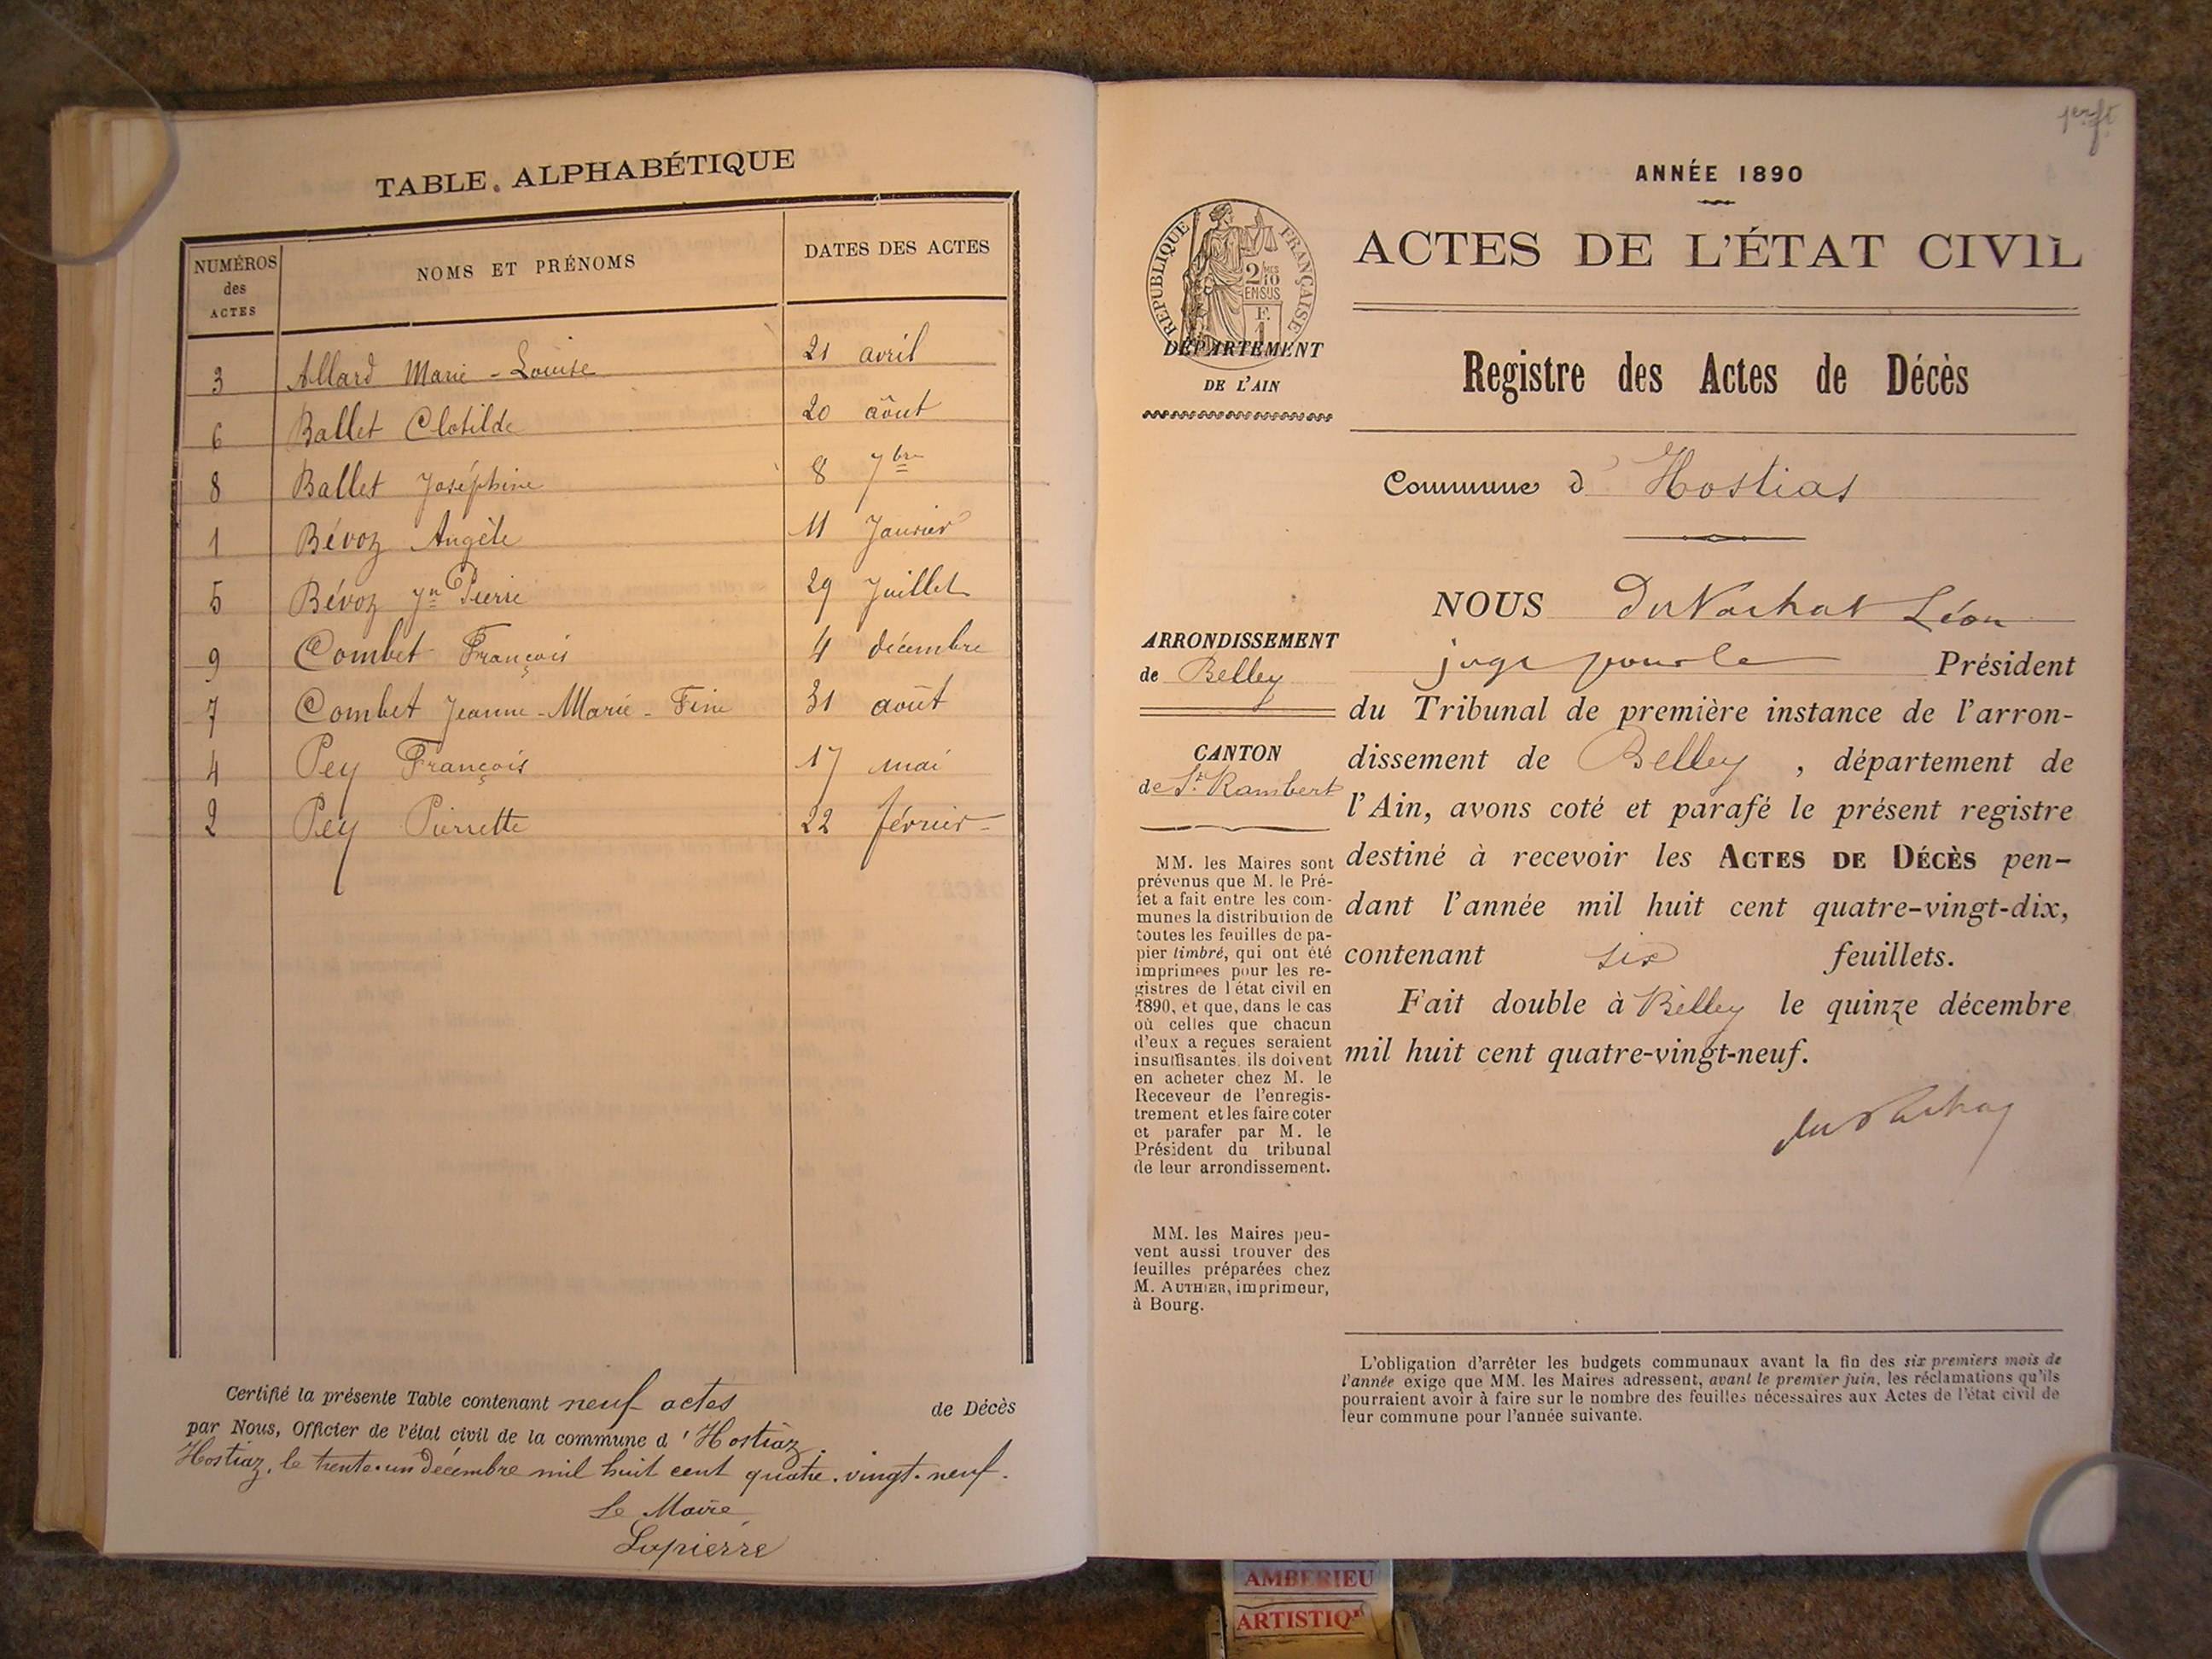 TABLE ALPHABÉTIQUE
NUMÉROS des ACTES NOMS ET PRÉNOMS DATES DES ACTES
3 Allard Marie-Louise 21 avril
6 Ballet Clotilde 20 aôut
8 Ballet Joséphine 8 7bre
1 Bévoz Angèle 11 Janvier
5 Bévoz Jn Pierre 29 Juillet
9 Combet François 4 décembre
7 Combet Jeanne-Marie-Fine 31 août
4 Pey François 17 mai
2 Pey Pierrette 22 février
Certifié la présente Table contenant neuf actes de Décès
par Nous, Officier de l'état civil de la commune d'Hostiaz.
Hostiaz, le trente-un décembre mil huit cent quatre-vingt-neuf.
Le Maire,
Lapierre
ANNÉE 1890
ACTES DE L'ÉTAT CIVIL
RÉPUBLIQUE FRANÇAISE
2/10 MES
EN SUS
F.
1
DÉPARTEMENT
DE L'AIN
Registre des Actes de Décès
Commune d'Hostias
ARRONDISSEMENT
de Belley
CANTON
de St. Rambert
MM. les Maires sont
prévenus que M. le Pré-
fet a fait entre les com-
munes la distribution de
toutes les feuilles de pa-
pier timbré, qui ont été
imprimées pour les re-
gistres de l'état civil en
1890, et que, dans le cas
où celles que chacun
d'eux a reçues seraient
insuffisantes, ils doivent
en acheter chez M. le
Receveur de l'enregis-
trement et les faire coter
et parafer par M. le
Président du tribunal
de leur arrondissement.
MM. les Maires peu-
vent aussi trouver des
feuilles préparées chez
M. AUTHIER, imprimeur,
à Bourg.
NOUS du Vachat Léon
juge pour le Président
du Tribunal de première instance de l'arron-
dissement de Belley, département de
l'Ain, avons coté et parafé le présent registre
destiné à recevoir les ACTES DE DÉCÈS pen-
dant l'année mil huit cent quatre-vingt-dix,
contenant six feuillets.
Fait double à Belley le quinze décembre
mil huit cent quatre-vingt-neuf.
du Vachat
L'obligation d'arrêter les budgets communaux avant la fin des six premiers mois de
l'année exige que MM. les Maires adressent, avant le premier juin, les réclamations qu'ils
pourraient avoir à faire sur le nombre des feuilles nécessaires aux Actes de l'état civil de
leur commune pour l'année suivante.
AMBERIEU
ARTISTIQ